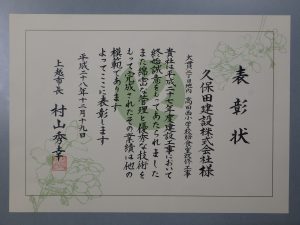 表彰状
久保田建設株式会社様
大貫二丁目地内 高田西小学校給食室改修工事
貴社は平成二十七年度建設工事において
終始誠意をもってあたられました
また綿密な管理と優秀な技術を
もって完成されたその業績は他の
模範であります
よってここに表彰します
平成二十八年十二月十九日
上越市長 村山秀幸